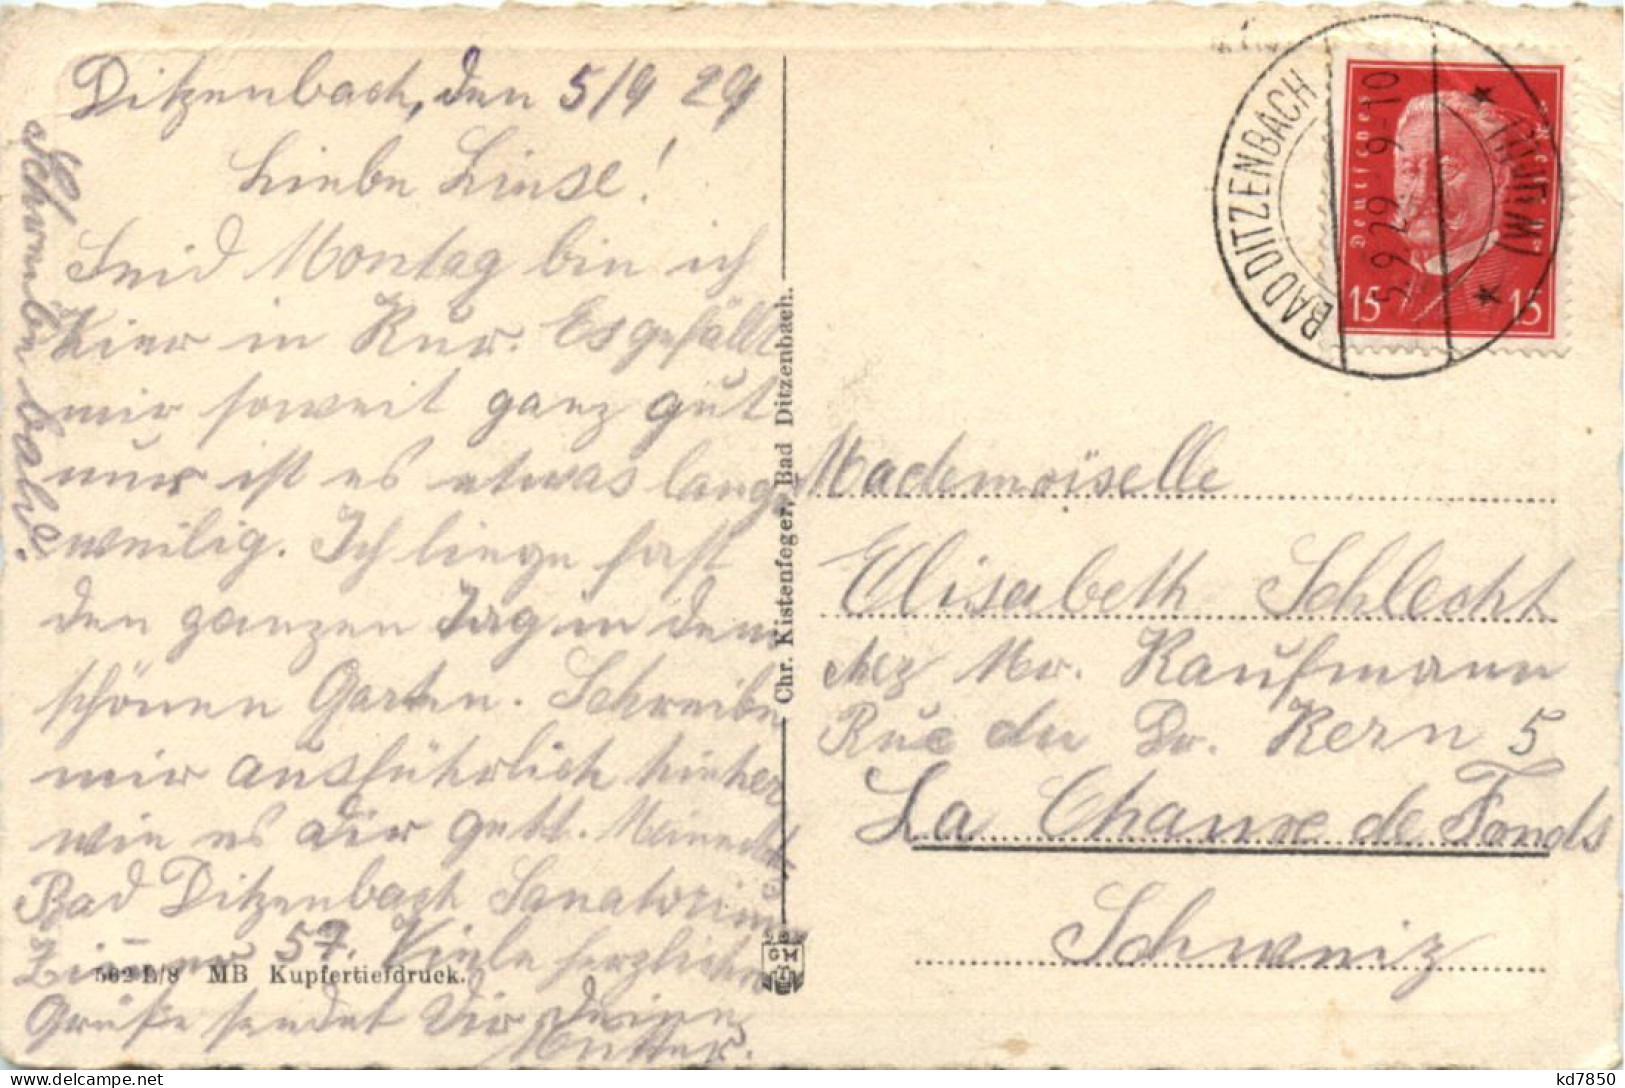 Ditzenbach, den 5/9 29
Liebe Liesel!
Seid Montag bin ich
hier in Kur. Es gefällt
mir soweit ganz gut
nur ist es etwas lang
weilig. Ich liege fast
den ganzen Tag in dem
schönen Garten. Schreibe
mir ausführlich hieher
wie es dir geht. Meine
Bad Ditzenbach Sanatorium
Zimmer 57. Viele herzliche
Grüße sendet Dir Deine
Mutter.
Schreibe bald.
562 L/8 MB Kupfertiefdruck.
Chr. Kistenfeger, Bad Ditzenbach.
GMD
BAD DITZENBACH
(WÜRTT)
5.9.29 9-10
Deutsches Reich
15 15
Mademoiselle
Elisabeth Schlecht
chez Mr. Kaufmann
Rue du Dr. Kern 5
La Chaux de Fonds
Schweiz
kd7850